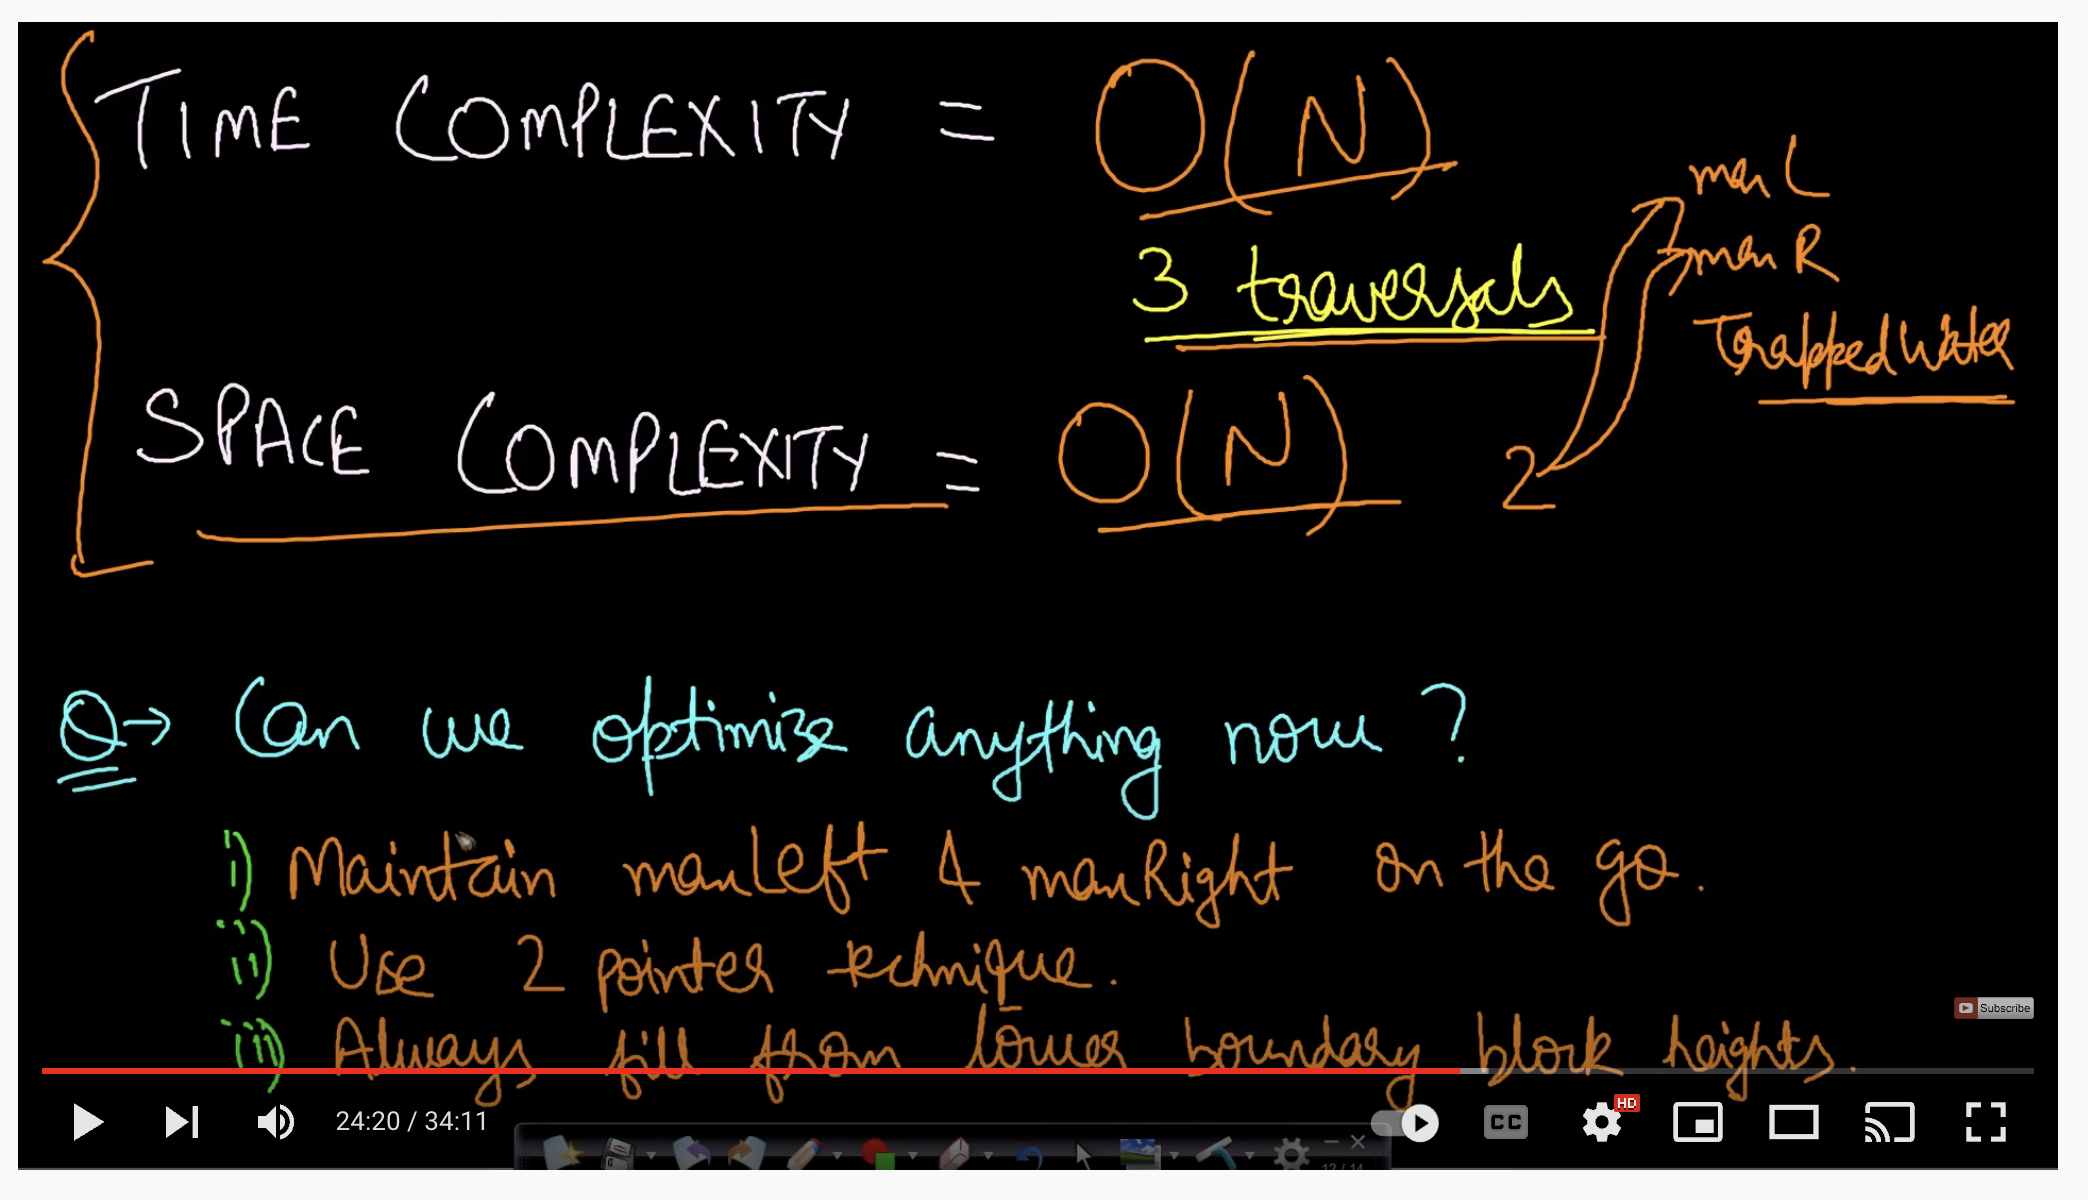 TIME COMPLEXITY = O(N)
maxL
3 traversals
maxR
TrappedWater
SPACE COMPLEXITY = O(N) 2
Q→ Can we optimize anything now ?
i) Maintain maxLeft & maxRight on the go.
ii) Use 2 pointer technique.
iii) Always fill from lower boundary block heights.
Subscribe
24:20 / 34:11
CC
HD
12 / 14